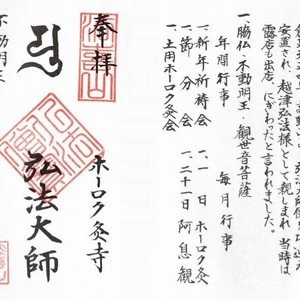 安置され、越津弘法様として親しまれ、当時は
露店も出店、にぎわったと言われました。
一、脇仏・不動明王・観世音菩薩
年間行事 毎月行事
一、新年祈祷会 一、一日 ホーロク灸
一、節分会 一、二十一日 阿息観
一、土用ホーロク灸会
奉拝 ホーロク灸寺
弘法大師
不動明王